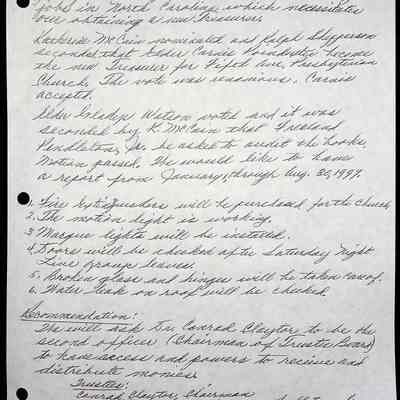 jobs in North Carolina which necessitates
our obtaining a new Treasurer.
Katherine McCain nominated and Ralph Shepperson
seconded that Elder Carnis Poindexter become
the new Treasurer for Fifth Ave, Presbyterian
Church. The vote was unanimous. Carnis
accepted.
Elder Gladys Watson voted and it was
seconded by K. McCain that Freeland
Pendleton, Jr. be asked to audit the books.
Motion passed. We would like to have
a report from January, through Aug. 30, 1997.
1. Fire Extinguishers will be purchased for the church.
2. The motion light is working.
3 Marque lights will be installed.
4. Doors will be checked after Saturday Night
Live group leaves.
5. Broken glass and hinges will be taken care of.
6. Water leak on roof will be checked.
Recommendation:
We will ask Tr. Conrad Claytor to be the
second officer (Chairman of Trustee Board)
to have access and powers to receive and
distribute monies.
Trustees:
Conrad Claytor, Chairman